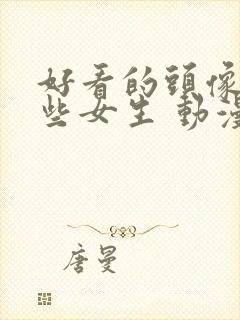 好看的頭像
些女生 動漫
唐曼